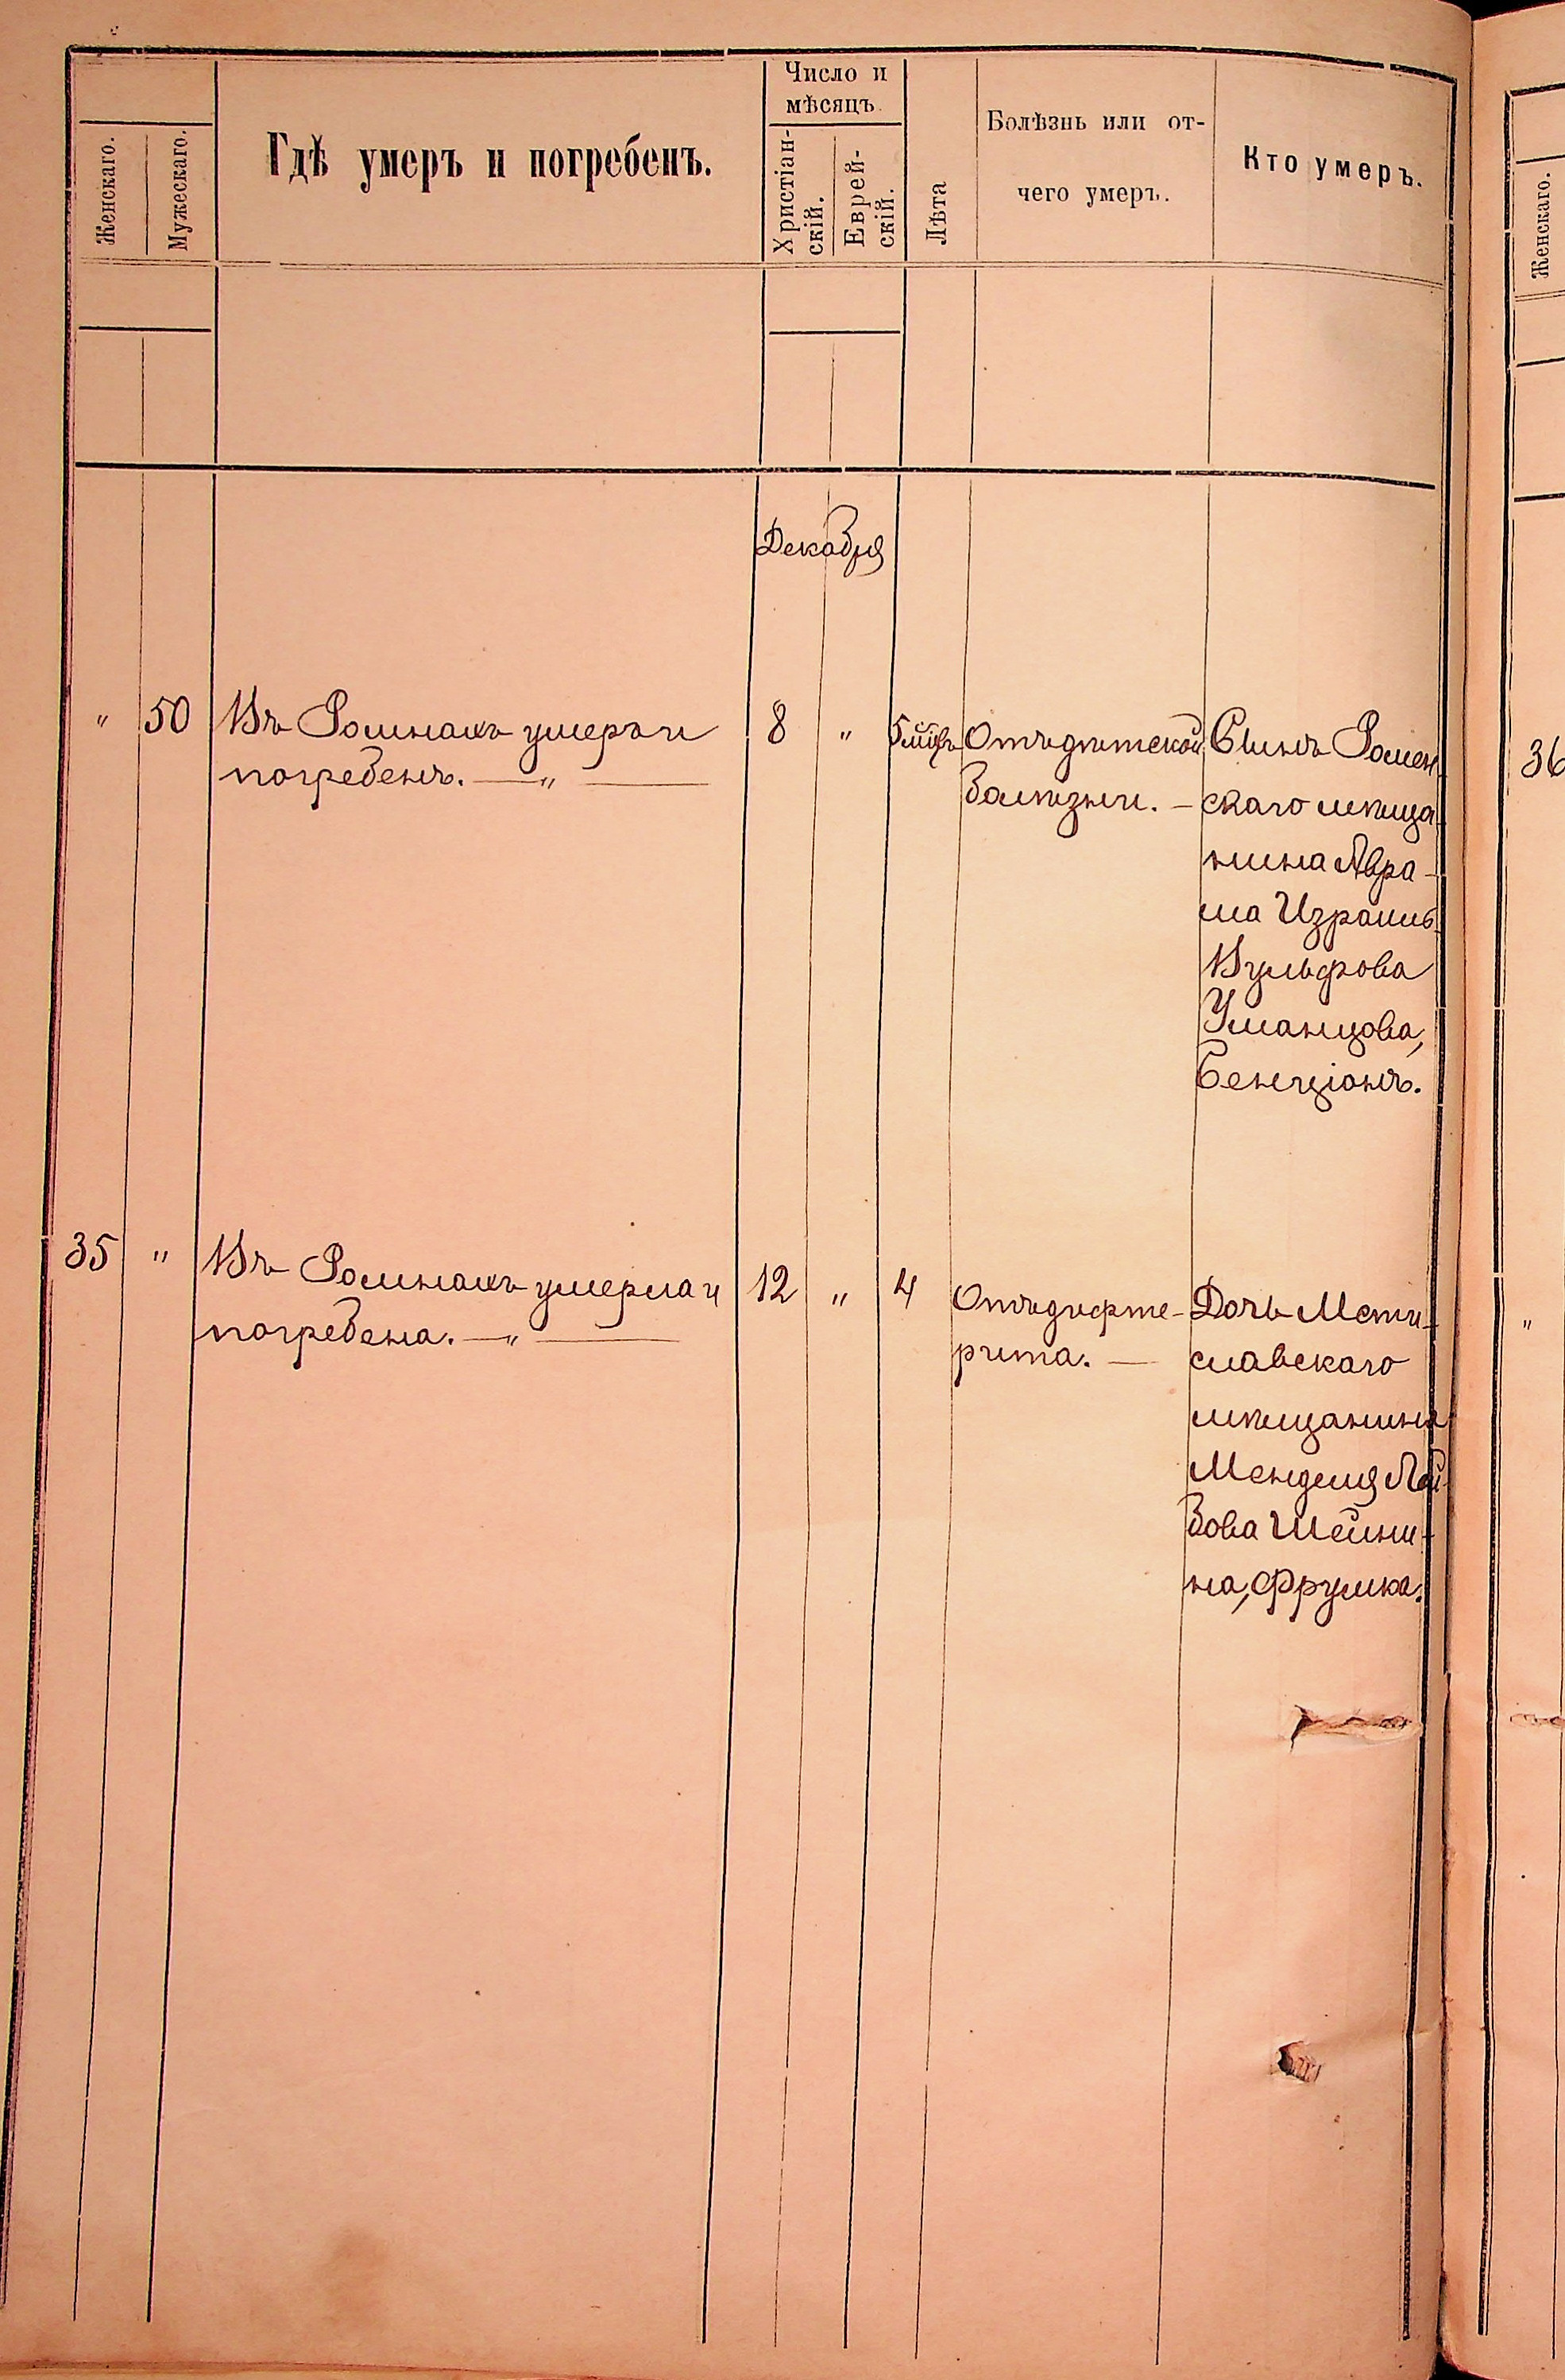 Женскаго.
Мужескаго.
Гдѣ умеръ и погребенъ.
Число и
мѣсяцъ.
Христіан-
скій.
Еврей-
скій.
Лѣта
Болѣзнь или от-
чего умеръ.
Кто умеръ.
Декабря
" 50 Въ Ромнахъ умеръ и
погребенъ. — " —
8 "
5 мѣс.
Отъ дѣтской
болѣзни. —
Сынъ Ромен-
скаго мѣща-
нина Авра-
ма Израиль-
Вульфова
Уманцова,
Бенціонъ.
35 " Въ Ромнахъ умерла и
погребена. — " —
12 " 4
Отъ дифте-
рита. —
Дочь Мсти-
славскаго
мѣщанина
Менделя Лей-
бова Шейни-
на, Фрумка.
Женскаго.
36
"